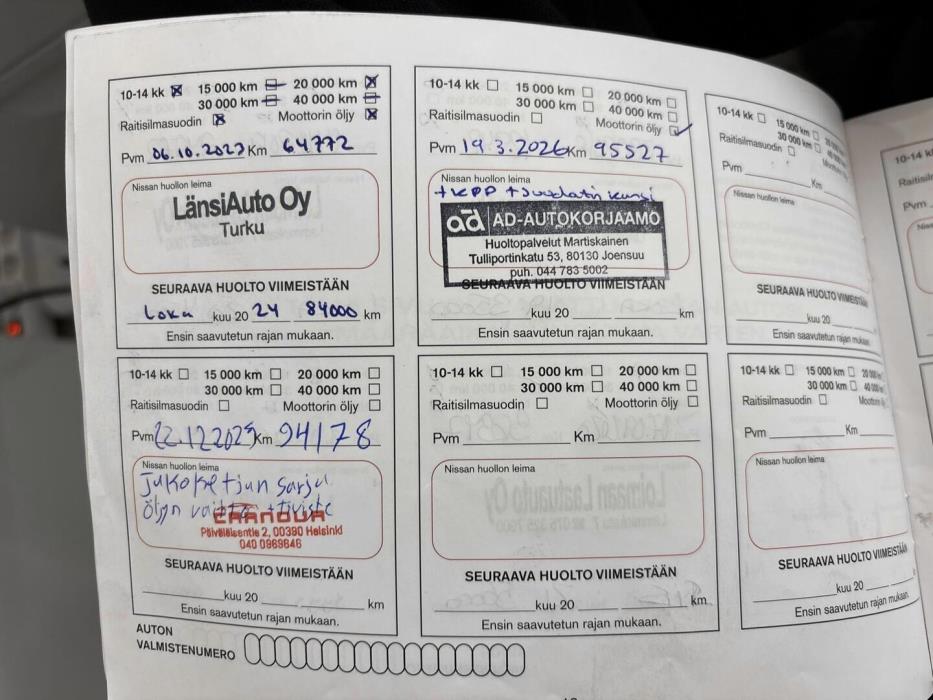 10-14 kk 15 000 km 20 000 km
30 000 km 40 000 km
Raitisilmasuodin Moottorin öljy
Pvm 06.10.2023 Km 64772
Nissan huollon leima
LänsiAuto Oy
Turku
SEURAAVA HUOLTO VIIMEISTÄÄN
Loka kuu 20 24 84000 km
Ensin saavutetun rajan mukaan.
10-14 kk 15 000 km 20 000 km
30 000 km 40 000 km
Raitisilmasuodin Moottorin öljy
Pvm 19.3.2026 Km 95527
Nissan huollon leima
+ KPP + suodatin kansi
ad AD-AUTOKORJAAMO
Huoltopalvelut Martiskainen
Tulliportinkatu 53, 80130 Joensuu
puh. 044 783 5002
SEURAAVA HUOLTO VIIMEISTÄÄN
kuu 20 km
Ensin saavutetun rajan mukaan.
10-14 kk 15 000 km
30 000 km
Raitisilmasuodin
Pvm Km
Nissan huollon leima
SEURAAVA HUOLTO VIIMEISTÄÄN
kuu 20
Ensin saavutetun rajan mukaan.
10-14 kk 15 000 km 20 000 km
30 000 km 40 000 km
Raitisilmasuodin Moottorin öljy
Pvm 22.12.2025 Km 94178
Nissan huollon leima
Jakoketjun sarja
öljyn vaihto + tiiviste
Päiväläisentie 2, 00390 Helsinki
040 0969646
SEURAAVA HUOLTO VIIMEISTÄÄN
kuu 20 km
Ensin saavutetun rajan mukaan.
10-14 kk 15 000 km 20 000 km
30 000 km 40 000 km
Raitisilmasuodin Moottorin öljy
Pvm Km
Nissan huollon leima
SEURAAVA HUOLTO VIIMEISTÄÄN
kuu 20 km
Ensin saavutetun rajan mukaan.
10-14 kk 15 000 km
30 000 km 40 000 km
Raitisilmasuodin
Pvm Km
Nissan huollon leima
SEURAAVA HUOLTO VIIMEISTÄÄN
kuu 20
Ensin saavutetun rajan mukaan.
AUTON
VALMISTENUMERO